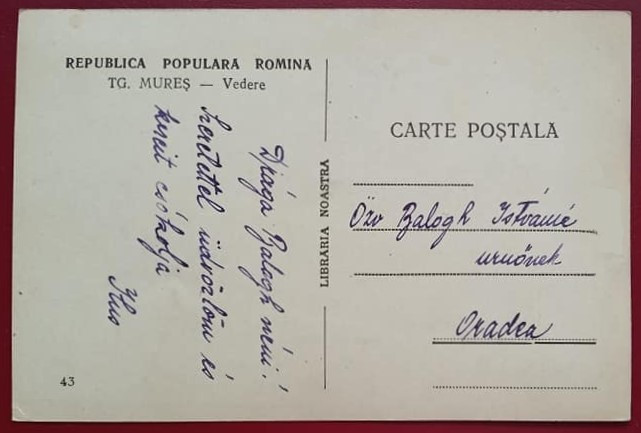 REPUBLICA POPULARA ROMINA
TG. MUREȘ — Vedere
Drága Balogh néni!
Szeretettel üdvözlöm és
kezeit csókolja
Ilus
43
LIBRĂRIA NOASTRA
CARTE POȘTALA
Özv Balogh Istvánné
urnőnek
Oradea